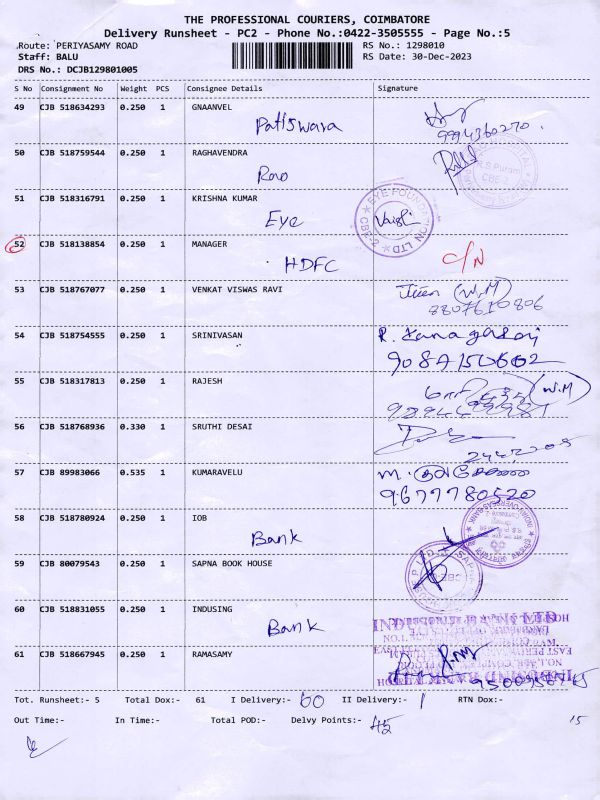 THE PROFESSIONAL COURIERS, COIMBATORE
Delivery Runsheet - PC2 - Phone No.:0422-3505555 - Page No.:5
Route: PERIYASAMY ROAD RS No.: 1298010
Staff: BALU RS Date: 30-Dec-2023
DRS No.: DCJB129801005
S No Consignment No Weight PCS Consignee Details Signature
49 CJB 518634293 0.250 1 GNAANVEL
Patiswara 9994360270.
50 CJB 518759544 0.250 1 RAGHAVENDRA
Rao
R.S Puram
CBE-2
51 CJB 518316791 0.250 1 KRISHNA KUMAR
Eye
EYE FOUNDATION LTD CBE-2
52 CJB 518138854 0.250 1 MANAGER
HDFC C/N
53 CJB 518767077 0.250 1 VENKAT VISWAS RAVI
(W.M)
8807610806
54 CJB 518754555 0.250 1 SRINIVASAN
55 CJB 518317813 0.250 1 RAJESH
(W.M)
56 CJB 518768936 0.330 1 SRUTHI DESAI
57 CJB 89983066 0.535 1 KUMARAVELU
9677780520
58 CJB 518780924 0.250 1 IOB
Bank
59 CJB 80079543 0.250 1 SAPNA BOOK HOUSE
60 CJB 518831055 0.250 1 INDUSING
Bank
61 CJB 518667945 0.250 1 RAMASAMY
Tot. Runsheet:- 5 Total Dox:- 61 I Delivery:- 60 II Delivery:- 1 RTN Dox:-
Out Time:- In Time:- Total POD:- Delvy Points:- 45 15